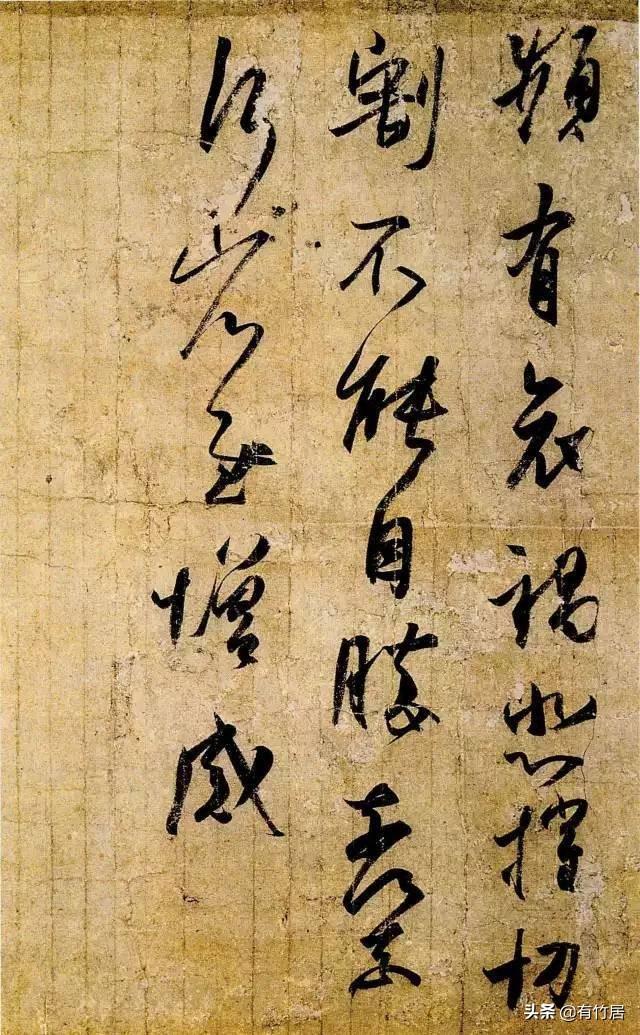 頻有哀禍悲摧切
割不能自勝奈何奈
何省慰增感
头条 @有竹居